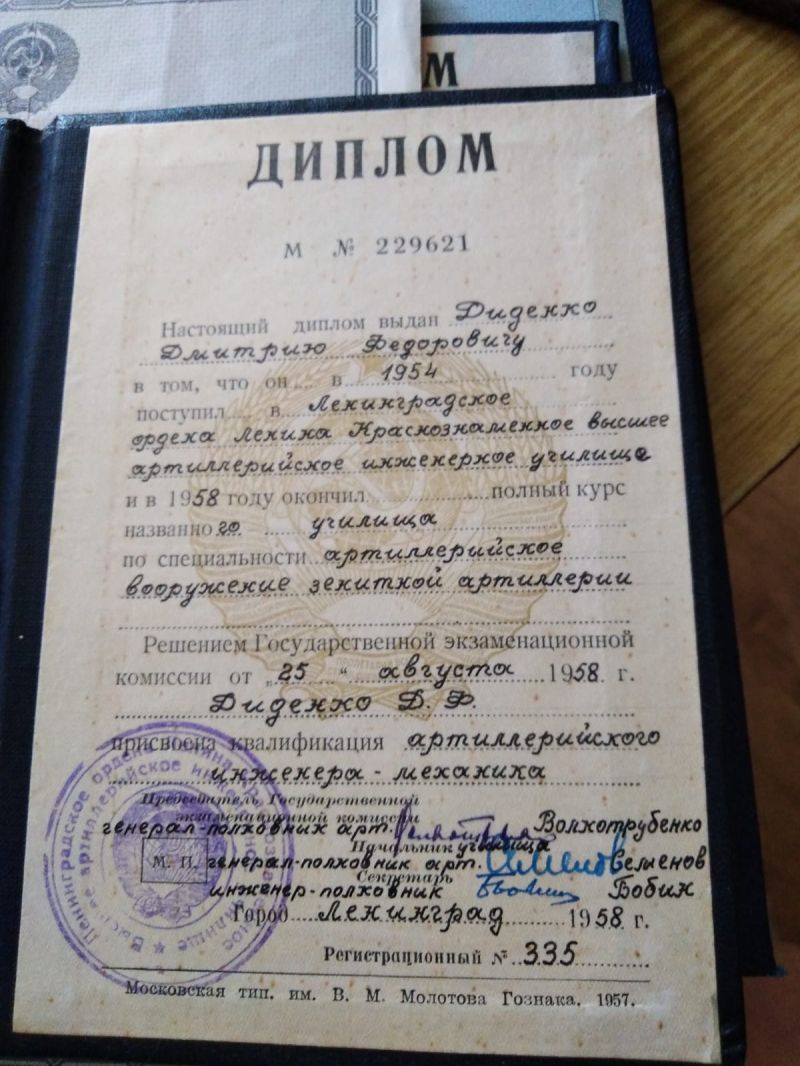 М
ДИПЛОМ
М № 229621
Настоящий диплом выдан Диденко
Дмитрию Федоровичу
в том, что он в 1954 году
поступил в Ленинградское
ордена Ленина Краснознаменное высшее
артиллерийское инженерное училище
и в 1958 году окончил полный курс
названного училища
по специальности артиллерийское
вооружение зенитной артиллерии
Решением Государственной экзаменационной
комиссии от „25 “ августа 1958 г.
Диденко Д. Ф.
присвоена квалификация артиллерийского
инженера - механика
Председатель Государственной
экзаменационной комиссии
генерал-полковник арт. Волкотрубенко
Начальник училища
М. П. генерал-полковник арт. Семенов
Секретарь
инженер-полковник Бобин
Город Ленинград 1958 г.
Регистрационный № 335
Московская тип. им. В. М. Молотова Гознака. 1957.